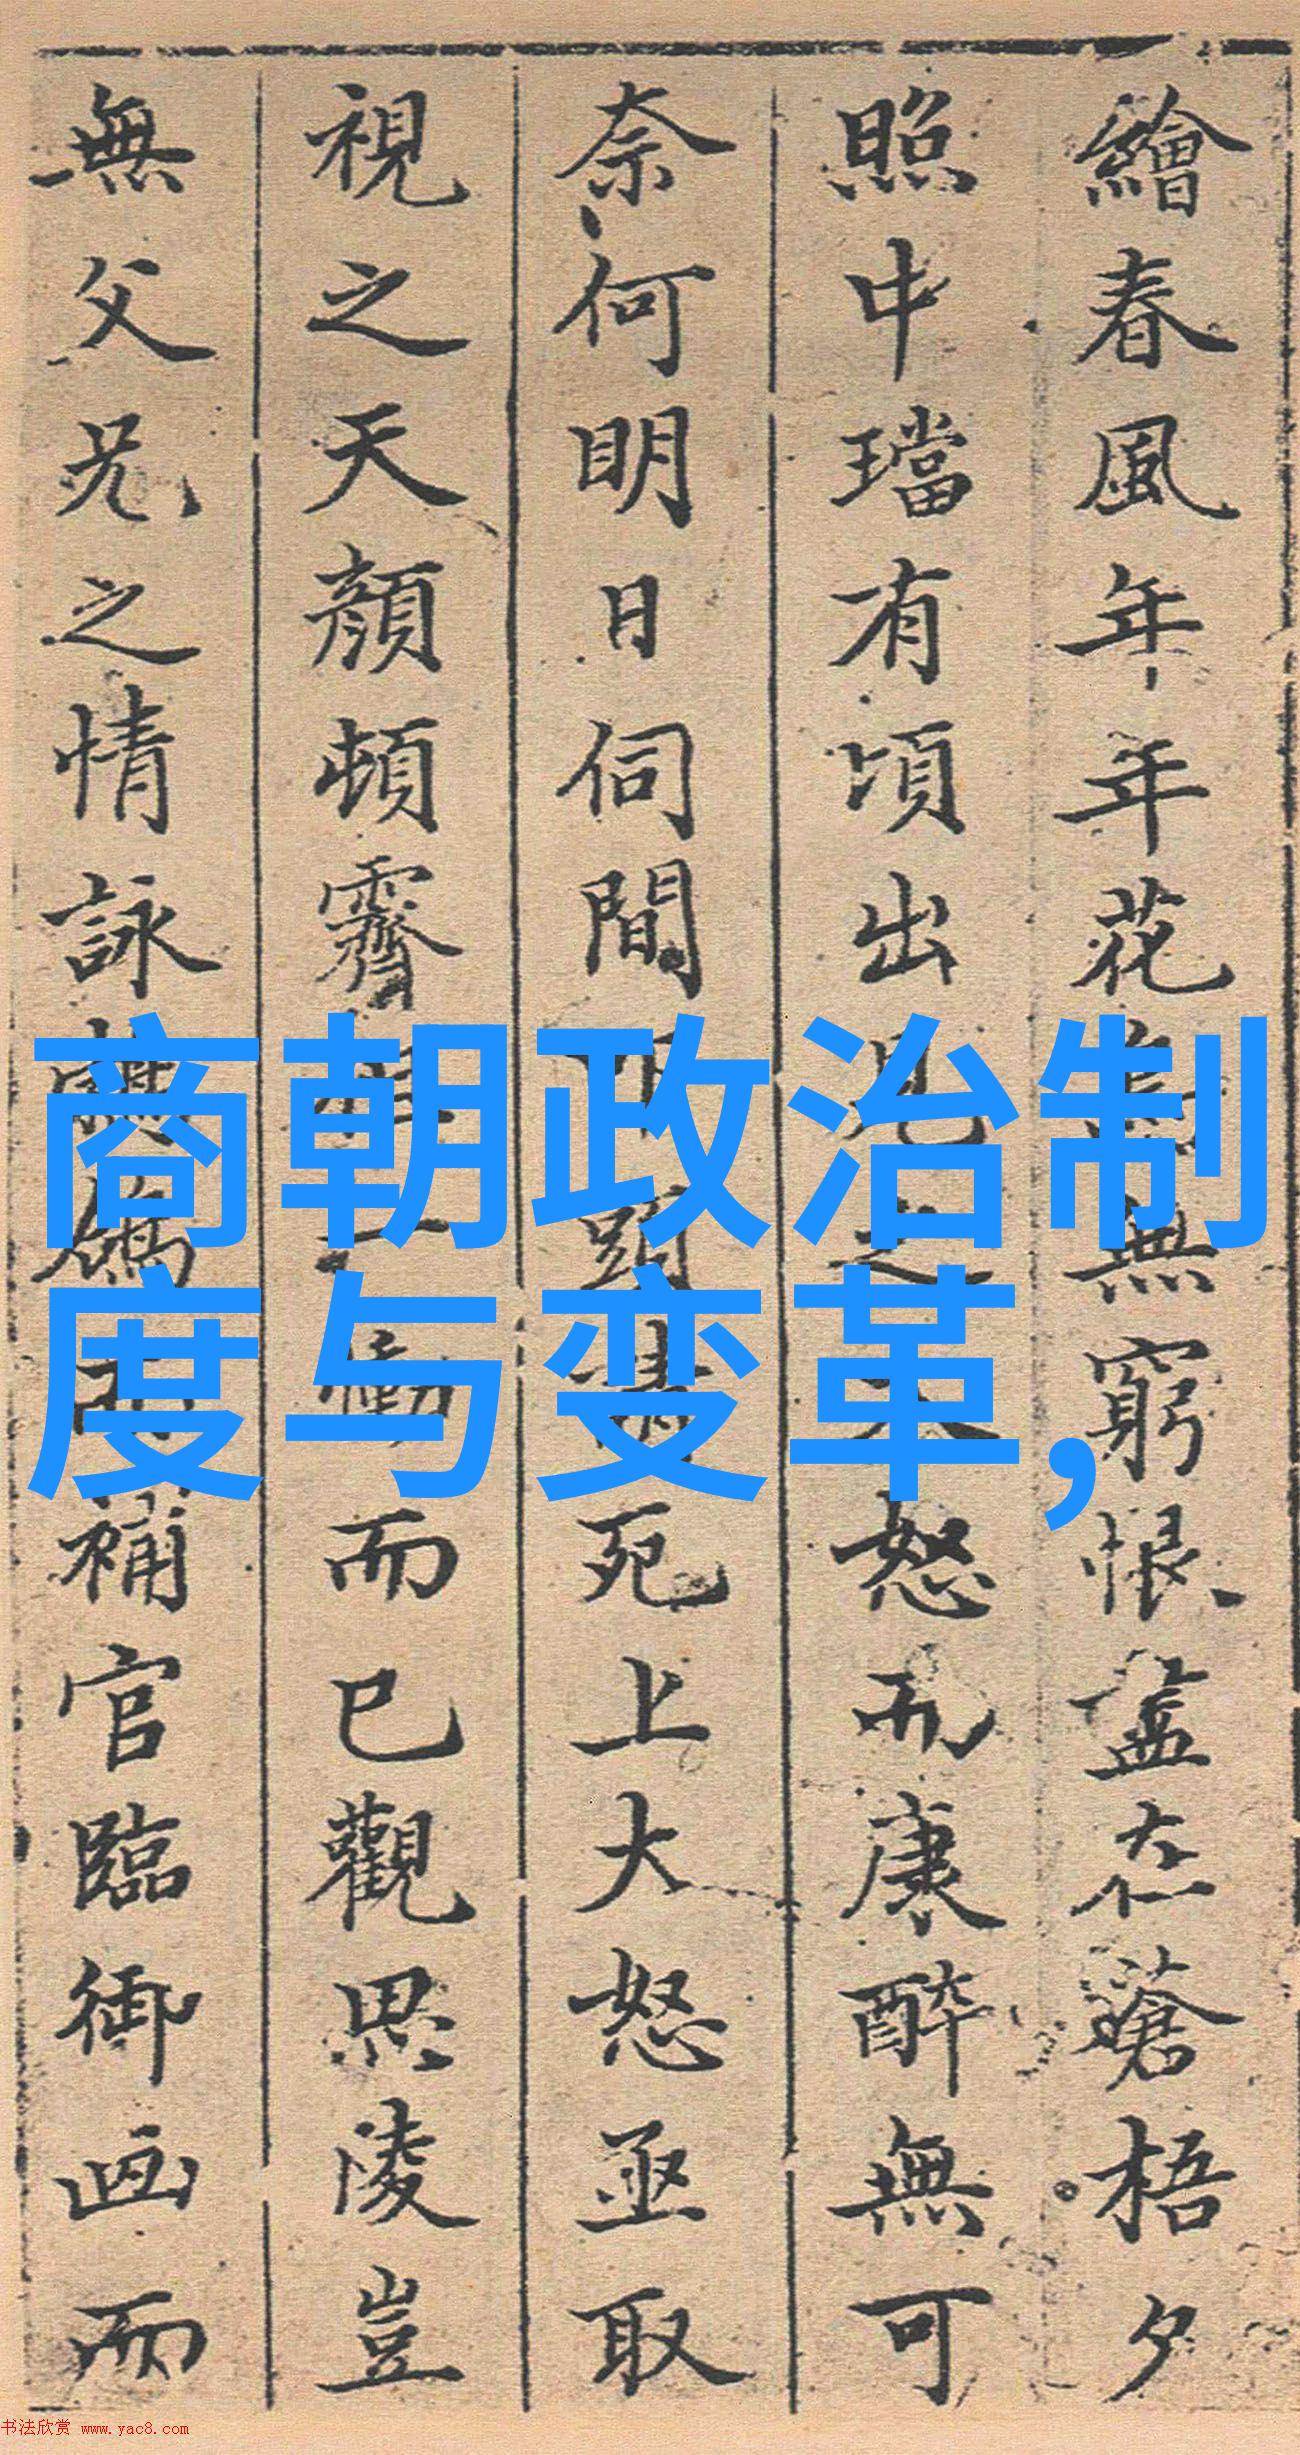 繪春風年年花鳥無窮恨盡在蒼梧夕
照中璫有頃出見之大怒而康醉無可
奈何明日伺間叩頭請死上大怒亟取
視之天顏頓霽一慟而已觀思陵豈
無父兄之情詠鴒而補官臨御画而
商朝政治制
度与变革,
书法欣赏 www.yac8.com